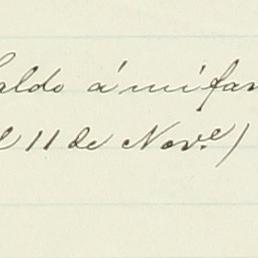 aldo á mi fam
l 11 de Nov.e)